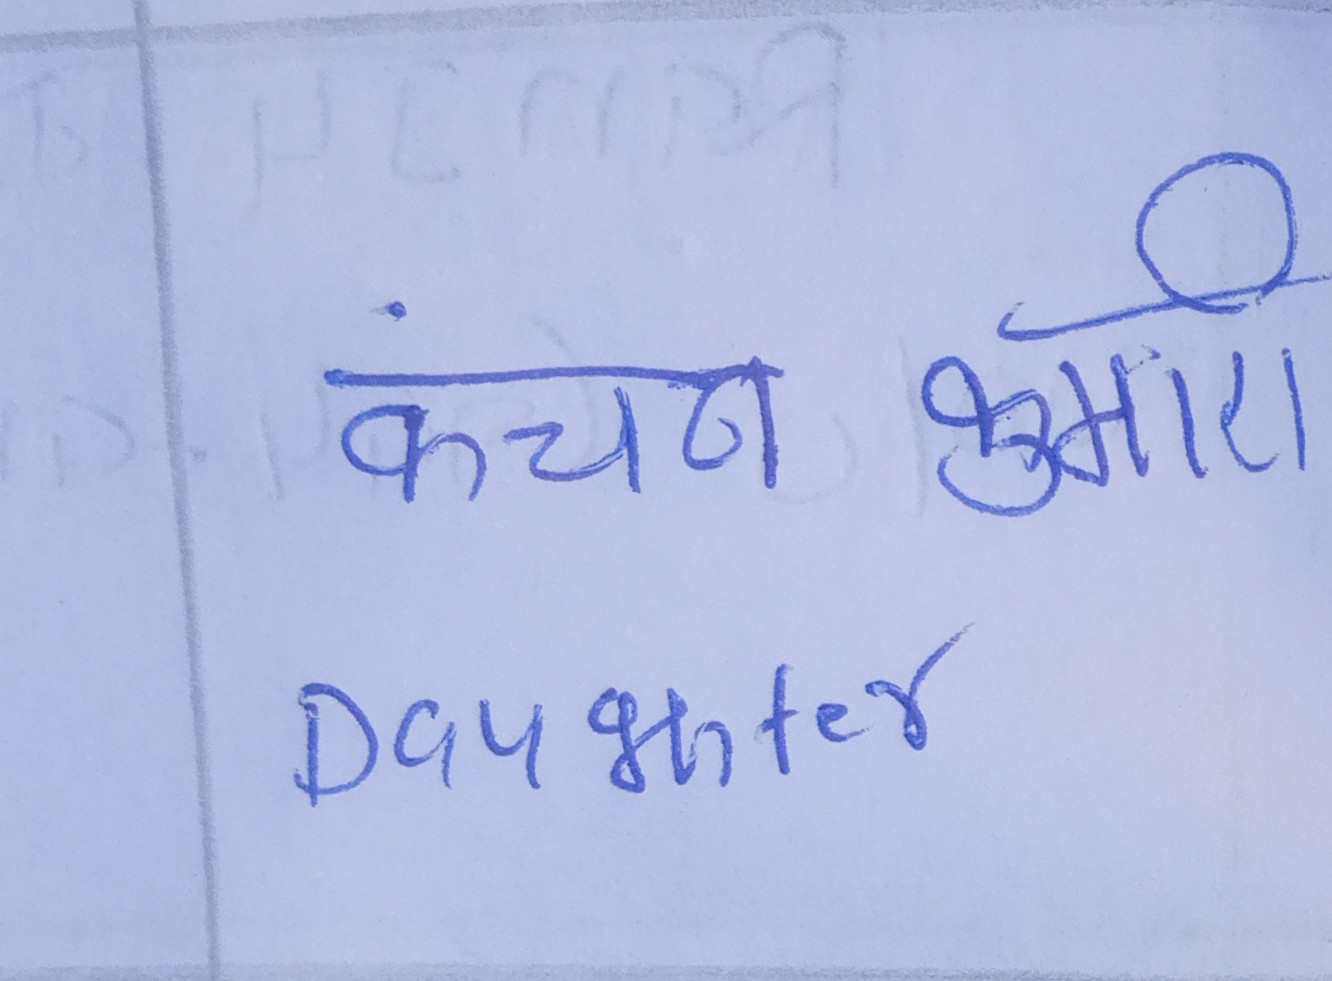 कंचन कुमारी
Daughter